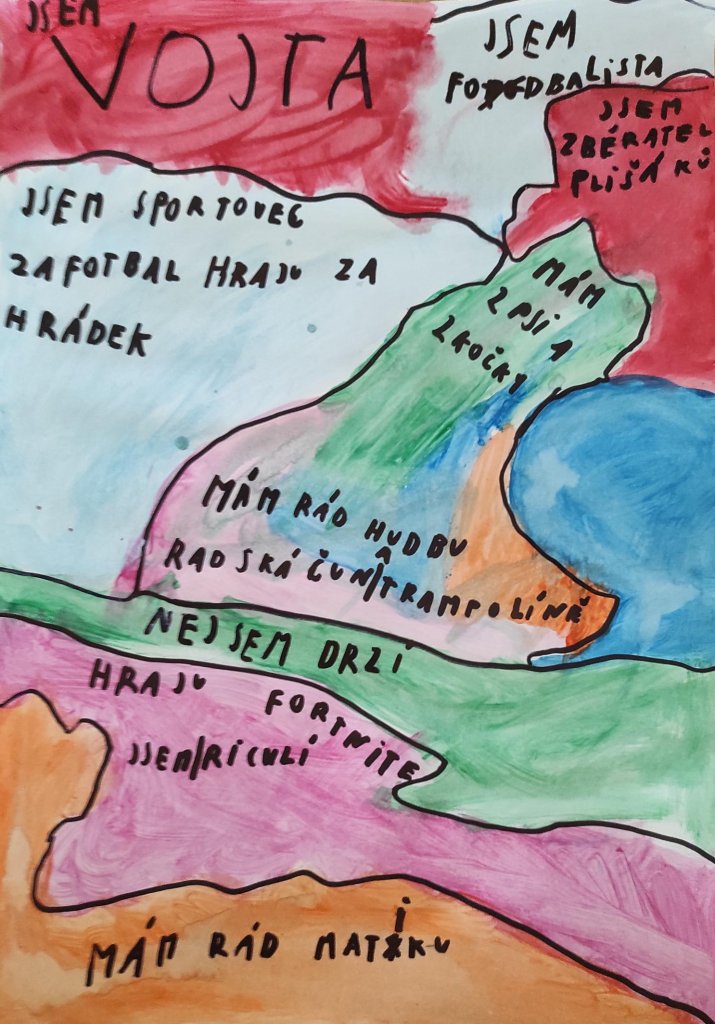 JSEM
VOJTA
JSEM
FOTDBALiSTA
JSEM
ZBĚRATEL
PLIŠÁKŮ
JSEM SPORTOVEC
ZA FOTBAL HRAJU ZA
HRÁDEK
MÁM
2 PSI A
2 KOČKY
MÁM RÁD HUDBU
RAD SKÁČU NA TRAMPOLÍNĚ
NEJSEM DRZÍ
HRAJU FORTNITE
JSEM/RICULÍ
MÁM RÁD MATIKU